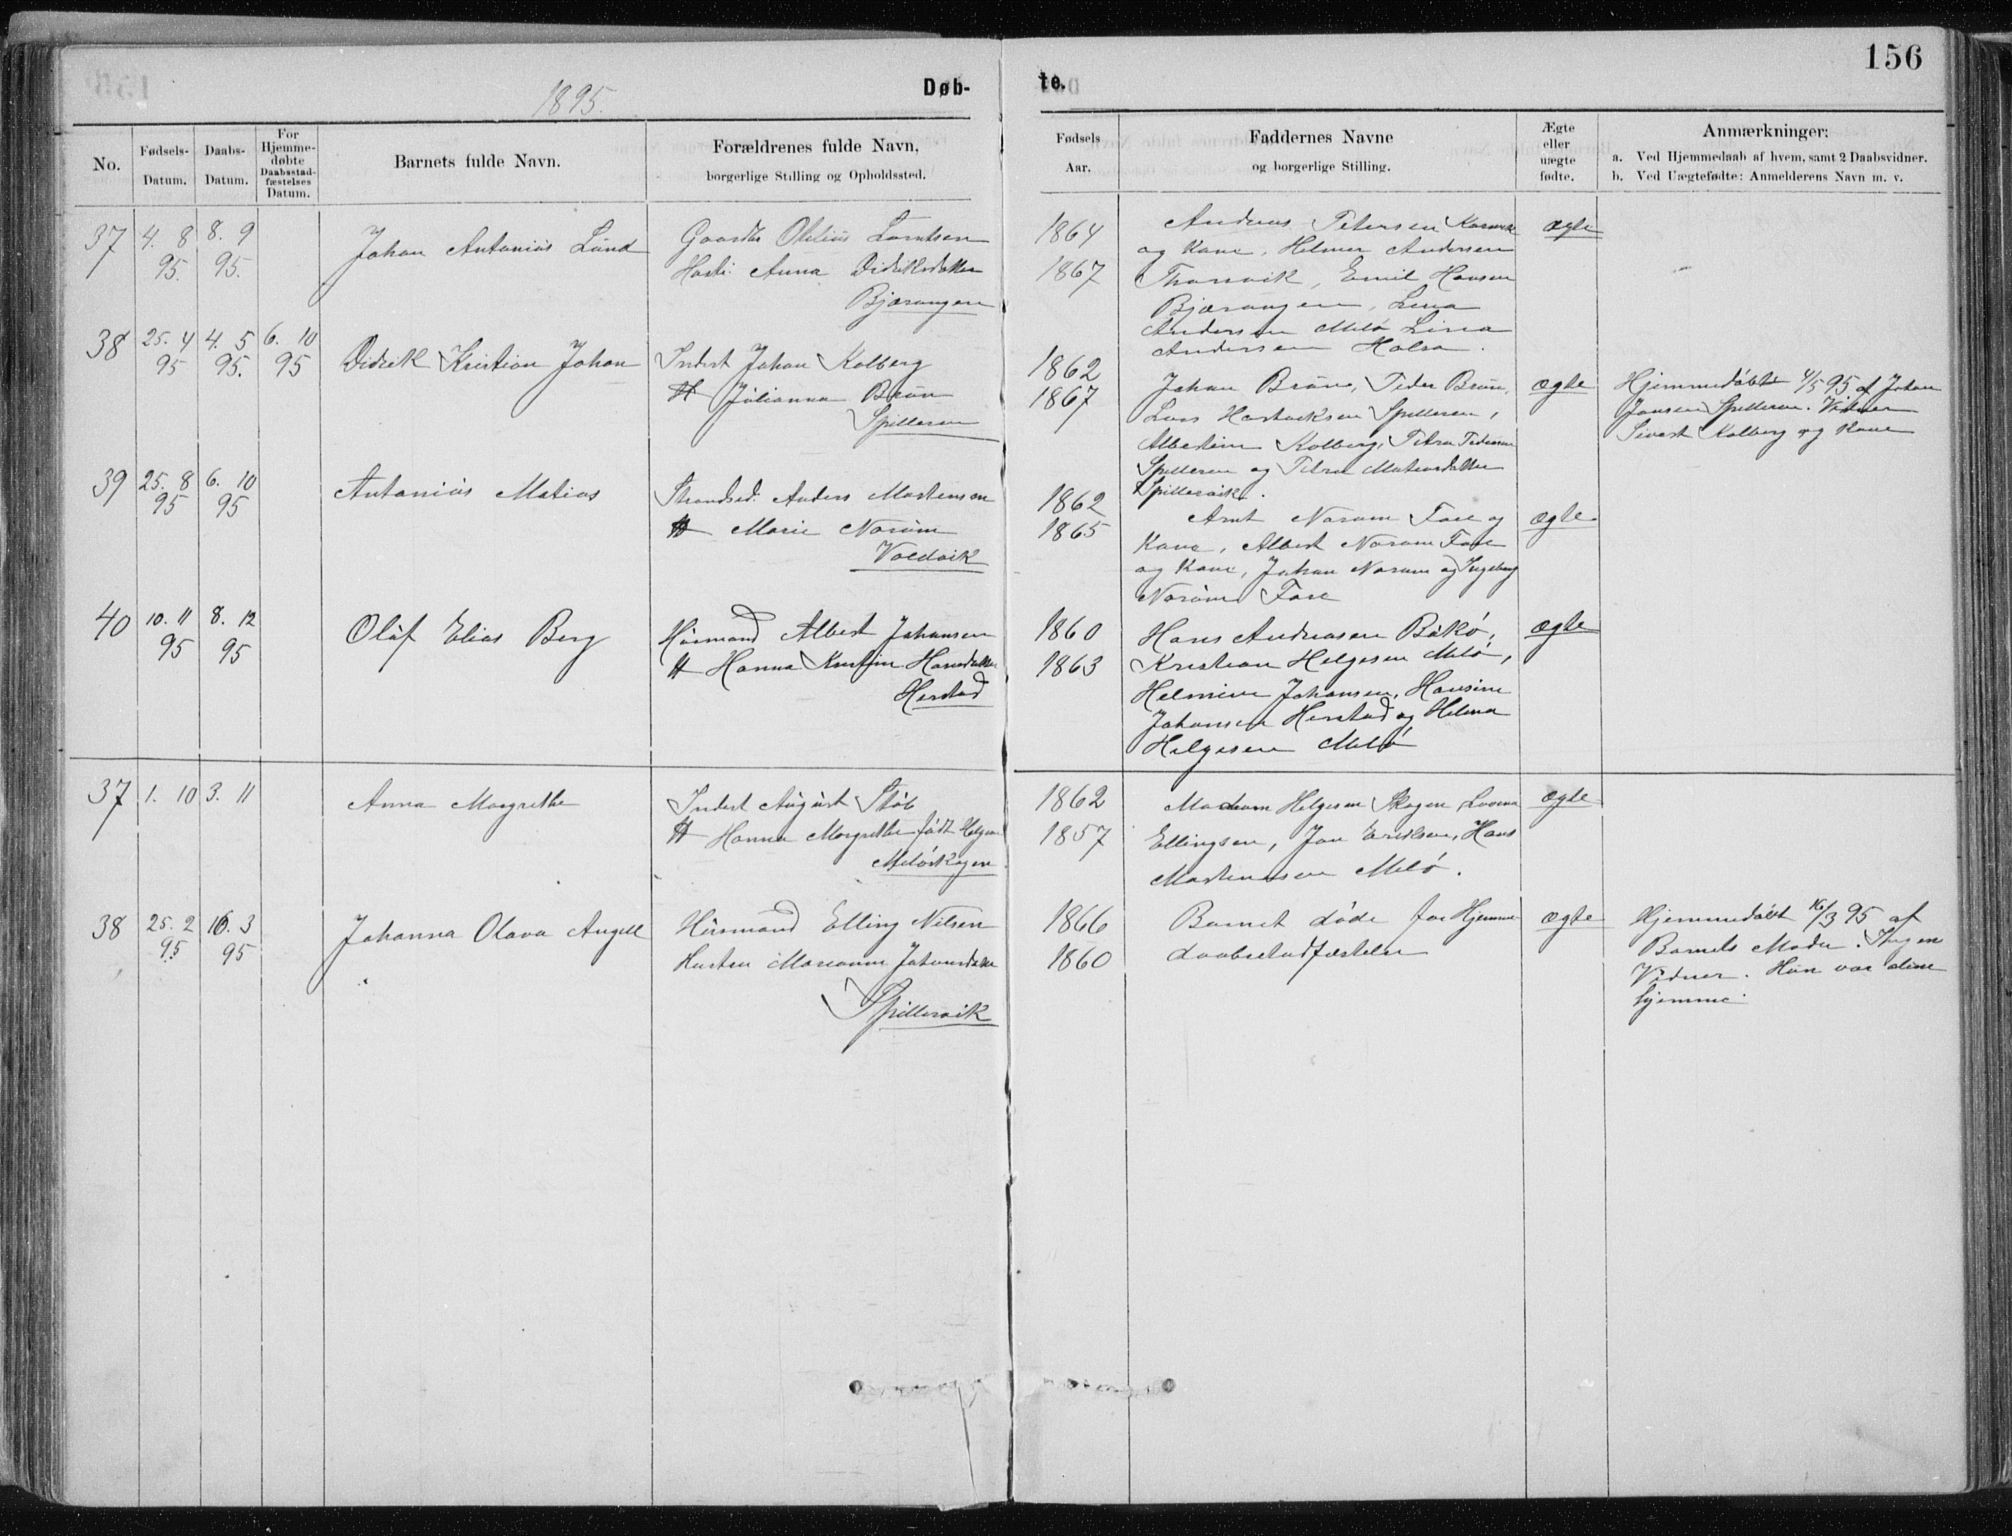 156
1895.
Døb-
te.
No.
Fødsels-
Datum.
Daabs-
Datum.
For
Hjemme-
døbte
Daabsstad-
fæstelses
Datum.
Barnets fulde Navn.
Forældrenes fulde Navn,
borgerlige Stilling og Opholdssted.
Fødsels
Aar.
Faddernes Navne
og borgerlige Stilling.
Ægte
eller
uægte
fødte.
Anmærkninger:
a. Ved Hjemmedaab af hvem, samt 2 Daabsvidner.
b. Ved Uægtefødte: Anmelderens Navn m. v.
37
4. 8
95.
8. 9
95.
Johan Antonius Lund
Gaardbr Otelius Lorntsen
Hustr. Anna Didriksdatter
Bjærangen
1864
1867
Andreas Petersen
og Kone, Helmer Andersen
Emil Hansen
Bjærangen, Lina
Andersen Melø Lina
Andersen Halsa.
ægte
38
25. 4
95
4. 5
95.
6. 10
95
Didrik Kristian Johan
Inderst Johan Kolberg
H Julianna Brun
Spilderen
1862
1867
Johan Brun, Peder Brun,
Lars Hartviksen Spilderen,
Albertine Kolberg, Petra Pedersen
Spilderen og Petra Mateusdatter
Spildervik.
ægte
Hjemmedøbt 4/5 95 af Johan
Jansen Spilderen. Vidner
Sivert Kolberg og Kone
39
25. 8
95
6. 10
95
Antonius Matias
Strandsid. Anders Mortensen
H Marie Norum
Valdvik
1862
1865
Arnt Norum Fore og
Kone, Albert Norum Fore
og Kone, Johan Norum og Ingeborg
Norum Fore
ægte
40
10. 11
95
8. 12
95
Oluf Elias Berg
Husmand Albert Johansen
H Hanna Kristine Hansdatter
Herstad
1860
1863
Hans Andreasen Bukø,
Kristian Helgesen Melø,
Helmine Johansen, Hansine
Johansen Herstad og Helena
Helgesen Melø
ægte
37
1. 10
3. 11
Anna Margrethe
Inderst August Støb
H Hanna Margrethe født Helgesen
Meløskogen
1862
1857
Madam Helgesen Skogen
Ellingsen, Jon Eriksen, Hans
Martinussen Melø.
ægte
38
25. 2
95
16. 3
95
Johanna Olava Angell
Husmand Elling Nilsen
Hustru Marianne Johansdatter
Spildervik
1866
1860
Barnet døde før Hjemme-
daabsstadfæstelse
ægte
Hjemmedøbt 16/3 95 af
Barnets Moder. Ingen
Vidner. Hun var alene
hjemme.